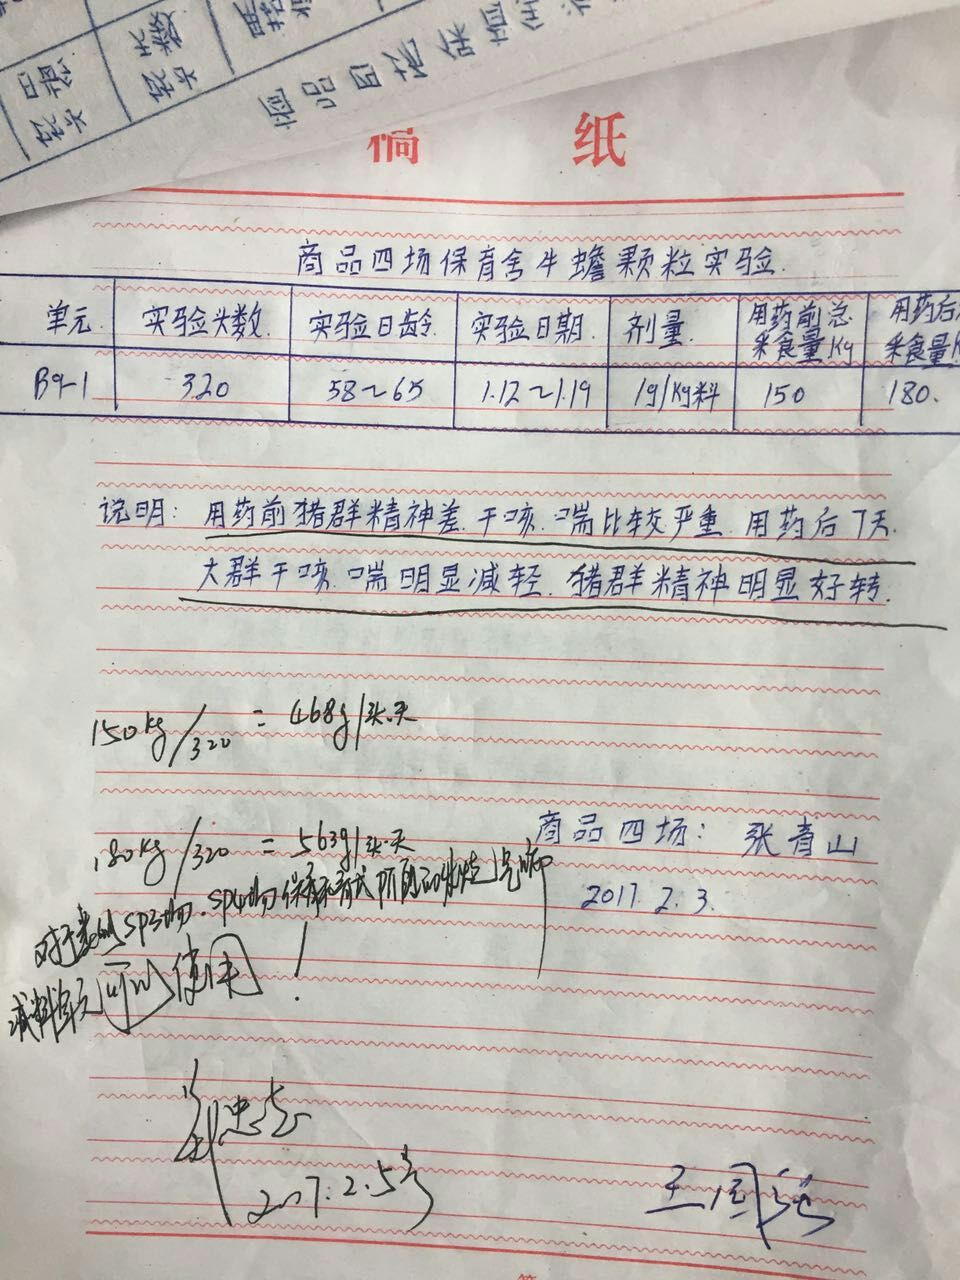 稿 纸
商品四场保育舍牛蟾颗粒实验
单元 实验头数 实验日龄 实验日期 剂量 用药前总采食量Kg 用药后
采食量K
B9-1 320 58~65 1.12~1.19 1g/Kg料 150 180.
说明: 用药前猪群精神差.干咳.喘比较严重.用药后7天.
大群干咳.喘明显减轻.猪群精神明显好转.
150kg/320 = 468g/头.天
180kg/320 = 563g/头.天
商品四场: 张青山
2017.2.3.
SP3场.SP4场 保育 阶段
减料单元 可以使用!
2017.2.5号
王国强